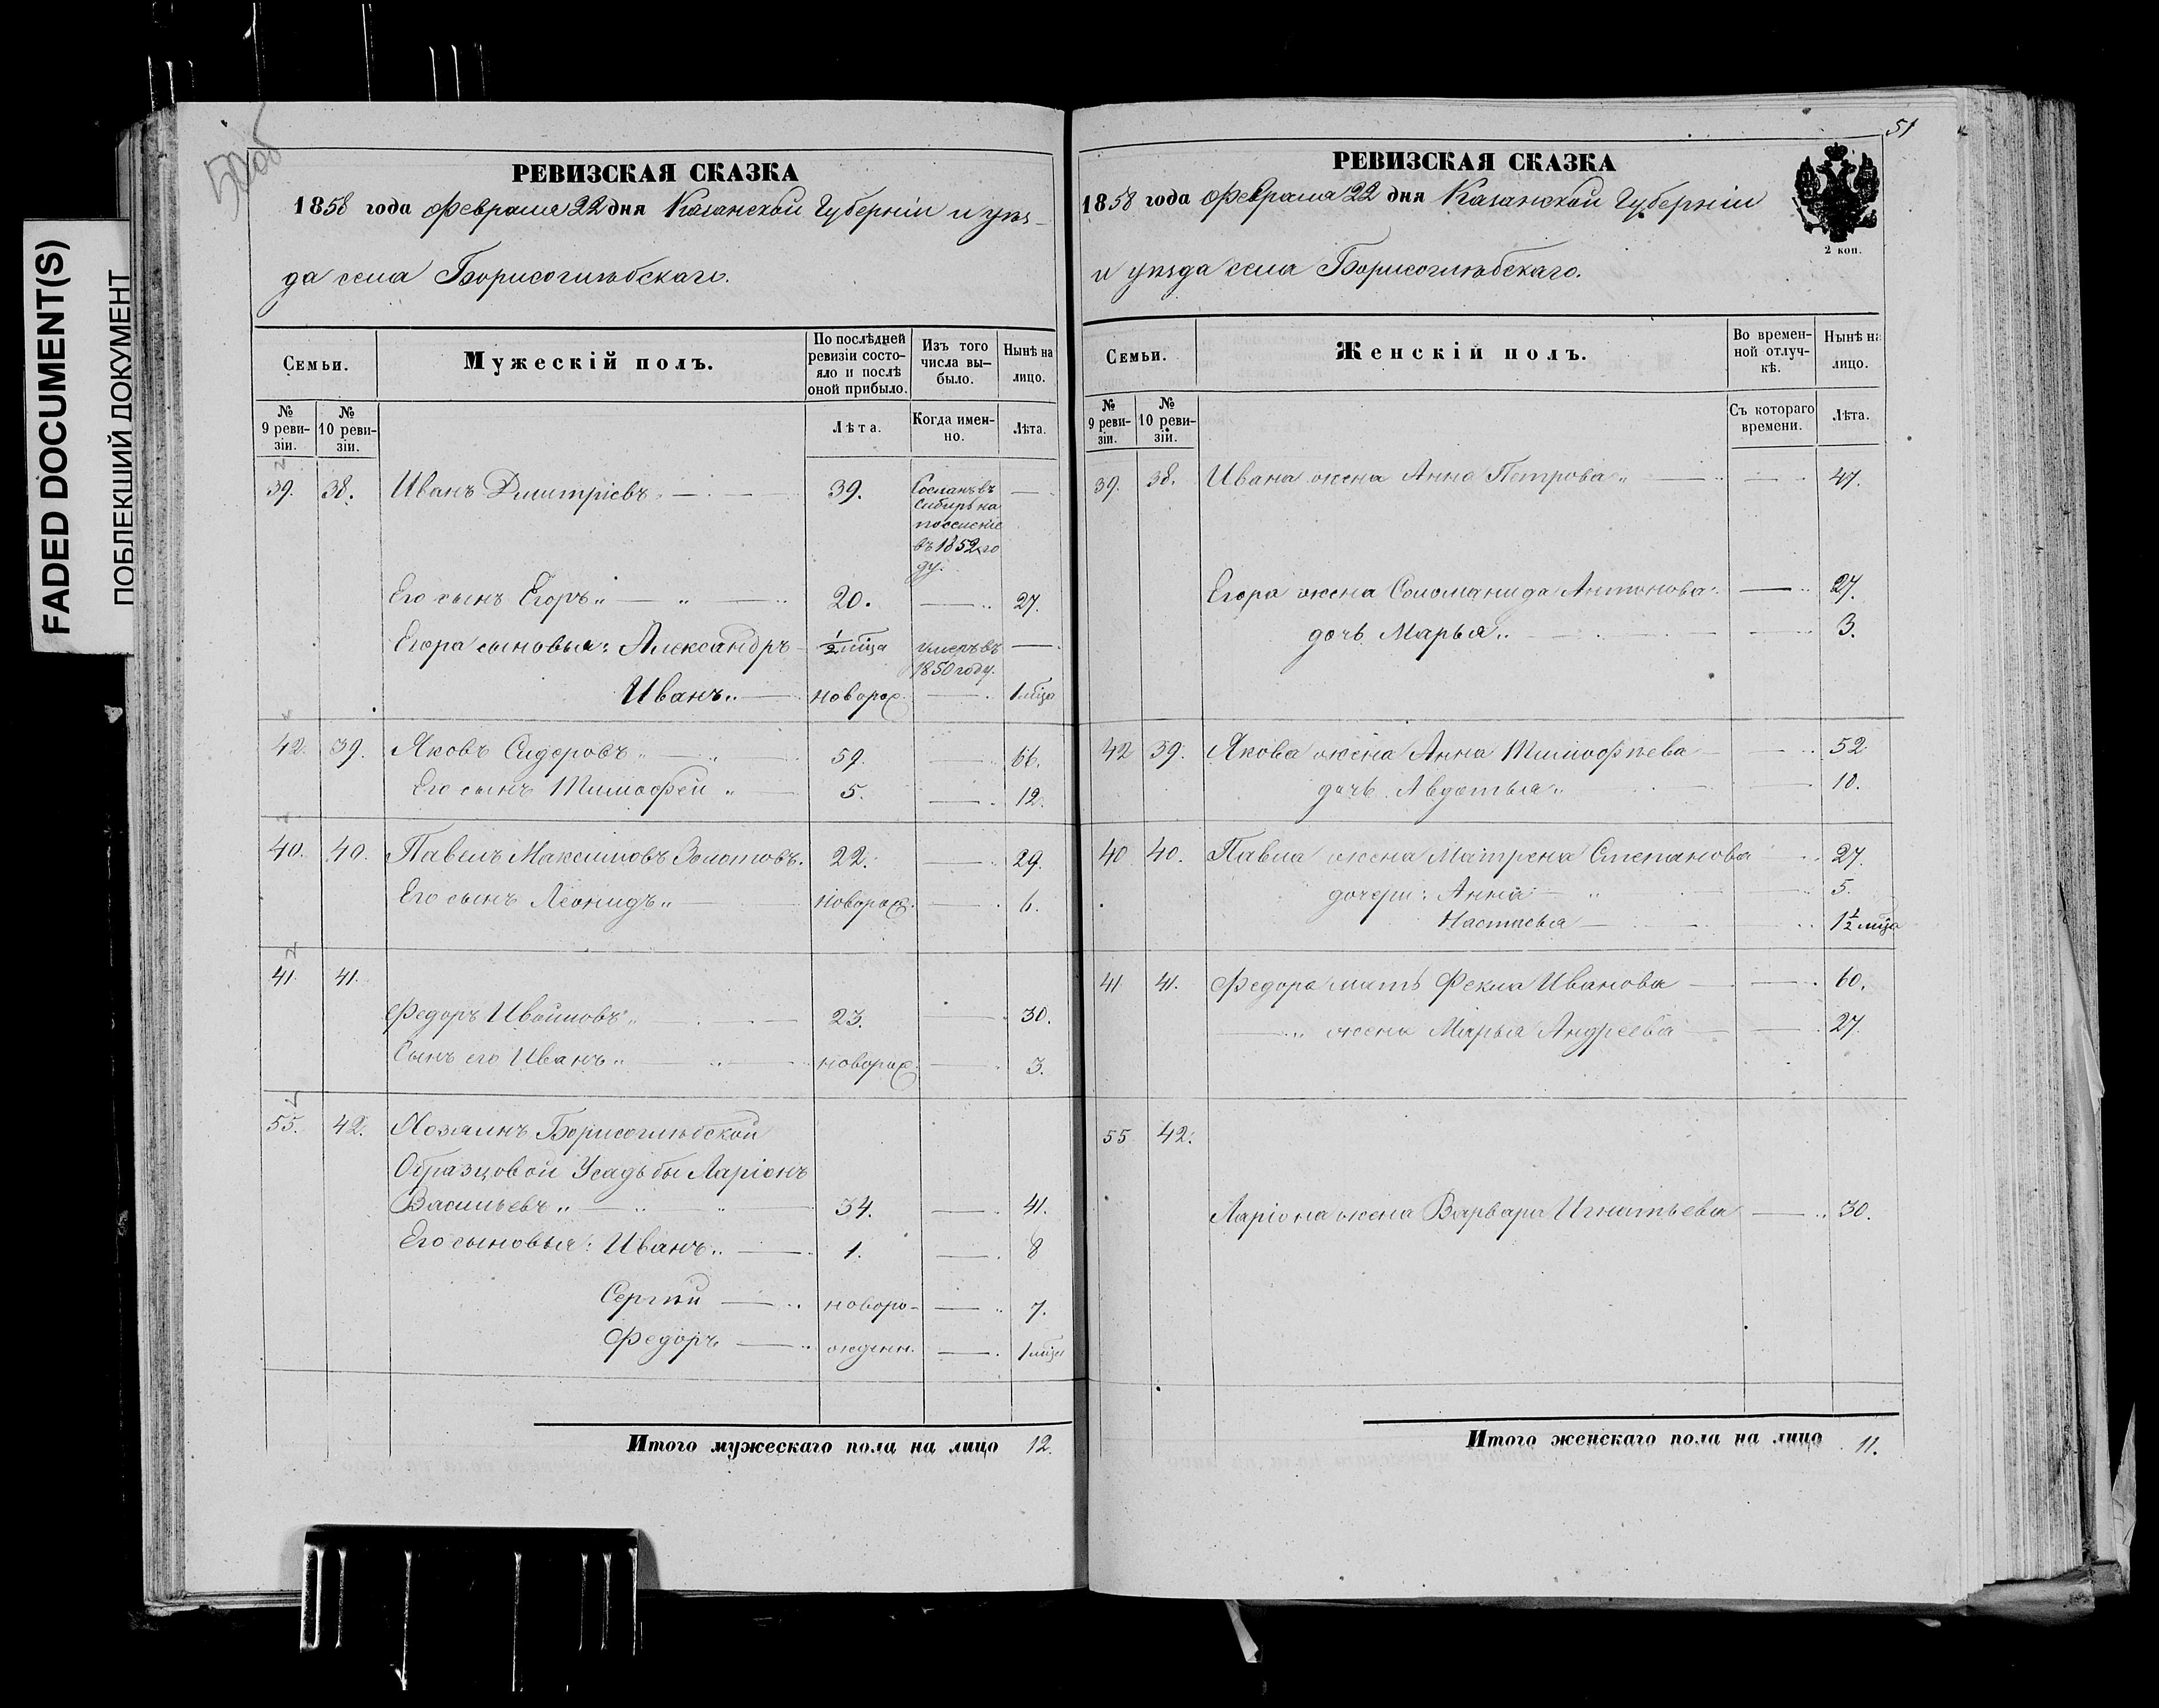 FADED DOCUMENT(S)
ПОБЛЕКШИЙ ДОКУМЕНТ
50об
РЕВИЗСКАЯ СКАЗКА
1858 года Февраля 22 дня Казанской Губерніи и уѣз-
да села Борисоглѣбскаго.
Семьи.
Мужескій полъ.
По послѣдней ревизіи состо-яло и послѣ оной прибыло.
Изъ того числа вы-было.
Нынѣ на лицо.
№ 9 реви-зіи.
№ 10 реви-зіи.
Лѣта.
Когда имен-но.
Лѣта.
39. 38. Иванъ Дмитріевъ 39. Сосланъ въ
Сибирь на
поселеніе
въ 1852 го
ду.
Его сынъ Егоръ 20. 27.
Егора сыновья: Александръ 1/2 мѣца умеръ въ
1850 году.
Иванъ новорож. 1 мѣца
42. 39. Яковъ Сидоровъ 59. 66.
Его сынъ Тимофей 5. 12.
40. 40. Павелъ Максимовъ Золотовъ. 22. 29.
Его сынъ Леонидъ новорож. 6.
41. 41.
Федоръ Ивойловъ 23. 30.
Сынъ его Иванъ новорож. 3.
55. 42. Хозяинъ Борисоглѣбской
Образцовой Усадьбы Ларіонъ
Васильевъ 34. 41.
Его сыновья: Иванъ 1. 8
Сергѣй новоро- 7.
Федоръ жденн. 1 мѣца
Итого мужескаго пола на лицо 12.
51
РЕВИЗСКАЯ СКАЗКА
1858 года Февраля 22 дня Казанской Губерніи
2 коп.
и уѣзда села Борисоглѣбскаго.
Семьи.
Женскій полъ.
Во времен-ной отлуч-кѣ.
Нынѣ на лицо.
№ 9 реви-зіи.
№ 10 реви-зіи.
Съ котораго времени.
Лѣта.
39. 38. Ивана жена Анна Петрова 47.
Егора жена Соломанида Антонова 27.
дочь Марья 3.
42 39. Якова жена Анна Тимофѣева 52
дочь Авдотья 10.
40 40. Павла жена Матрена Степанова 27.
дочери: Анна 5.
Настасья 1 1/2 мѣца
41 41. Федора мать Фекла Иванова 60.
жена Марья Андреева 27.
55 42.
Ларіона жена Варвара Игнатьева 30.
Итого женскаго пола на лицо 11.